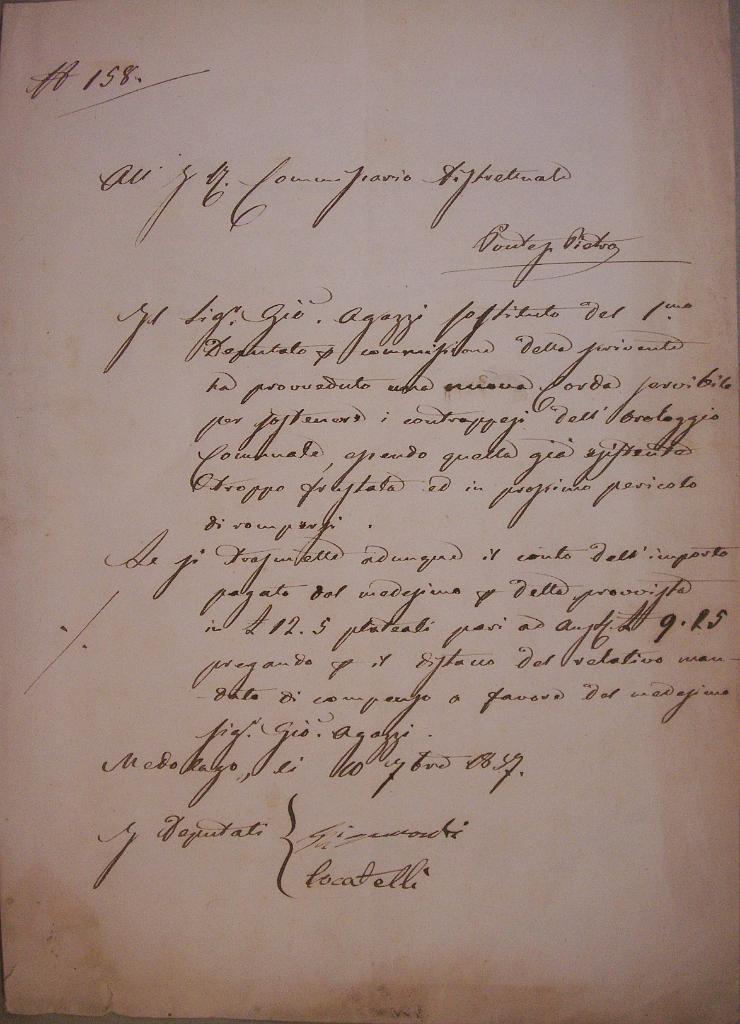 N 158.
All' I. R. Commissario Distrettuale
Ponte S. Pietro
Il Sig.r Gio. Agazzi sostituto del 1.mo
Deputato p commissione della scrivente
ha provveduto una nuova Corda servibile
per sostenere i contrappesi dell' Orologgio
Comunale, essendo quella già esistente
troppo frustata ed in prossimo pericolo
di rompersi.
Le si trasmette adunque il conto dell' importo
pagato dal medesimo p della provvista
in L 12.5 plateali pari ad Aust. L 9.25
pregando p il distacco del relativo man-
dato di compenso a favore del medesimo
Sig.r Gio. Agazzi.
Medolago, li 10 7bre 1857.
I Deputati
Locatelli